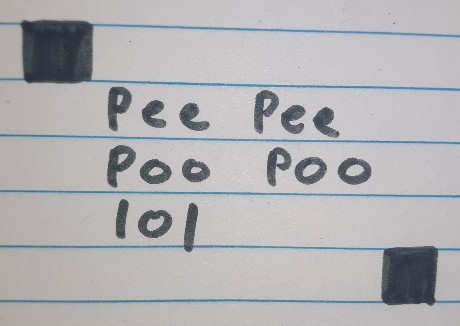 Pee Pee
Poo Poo
lol